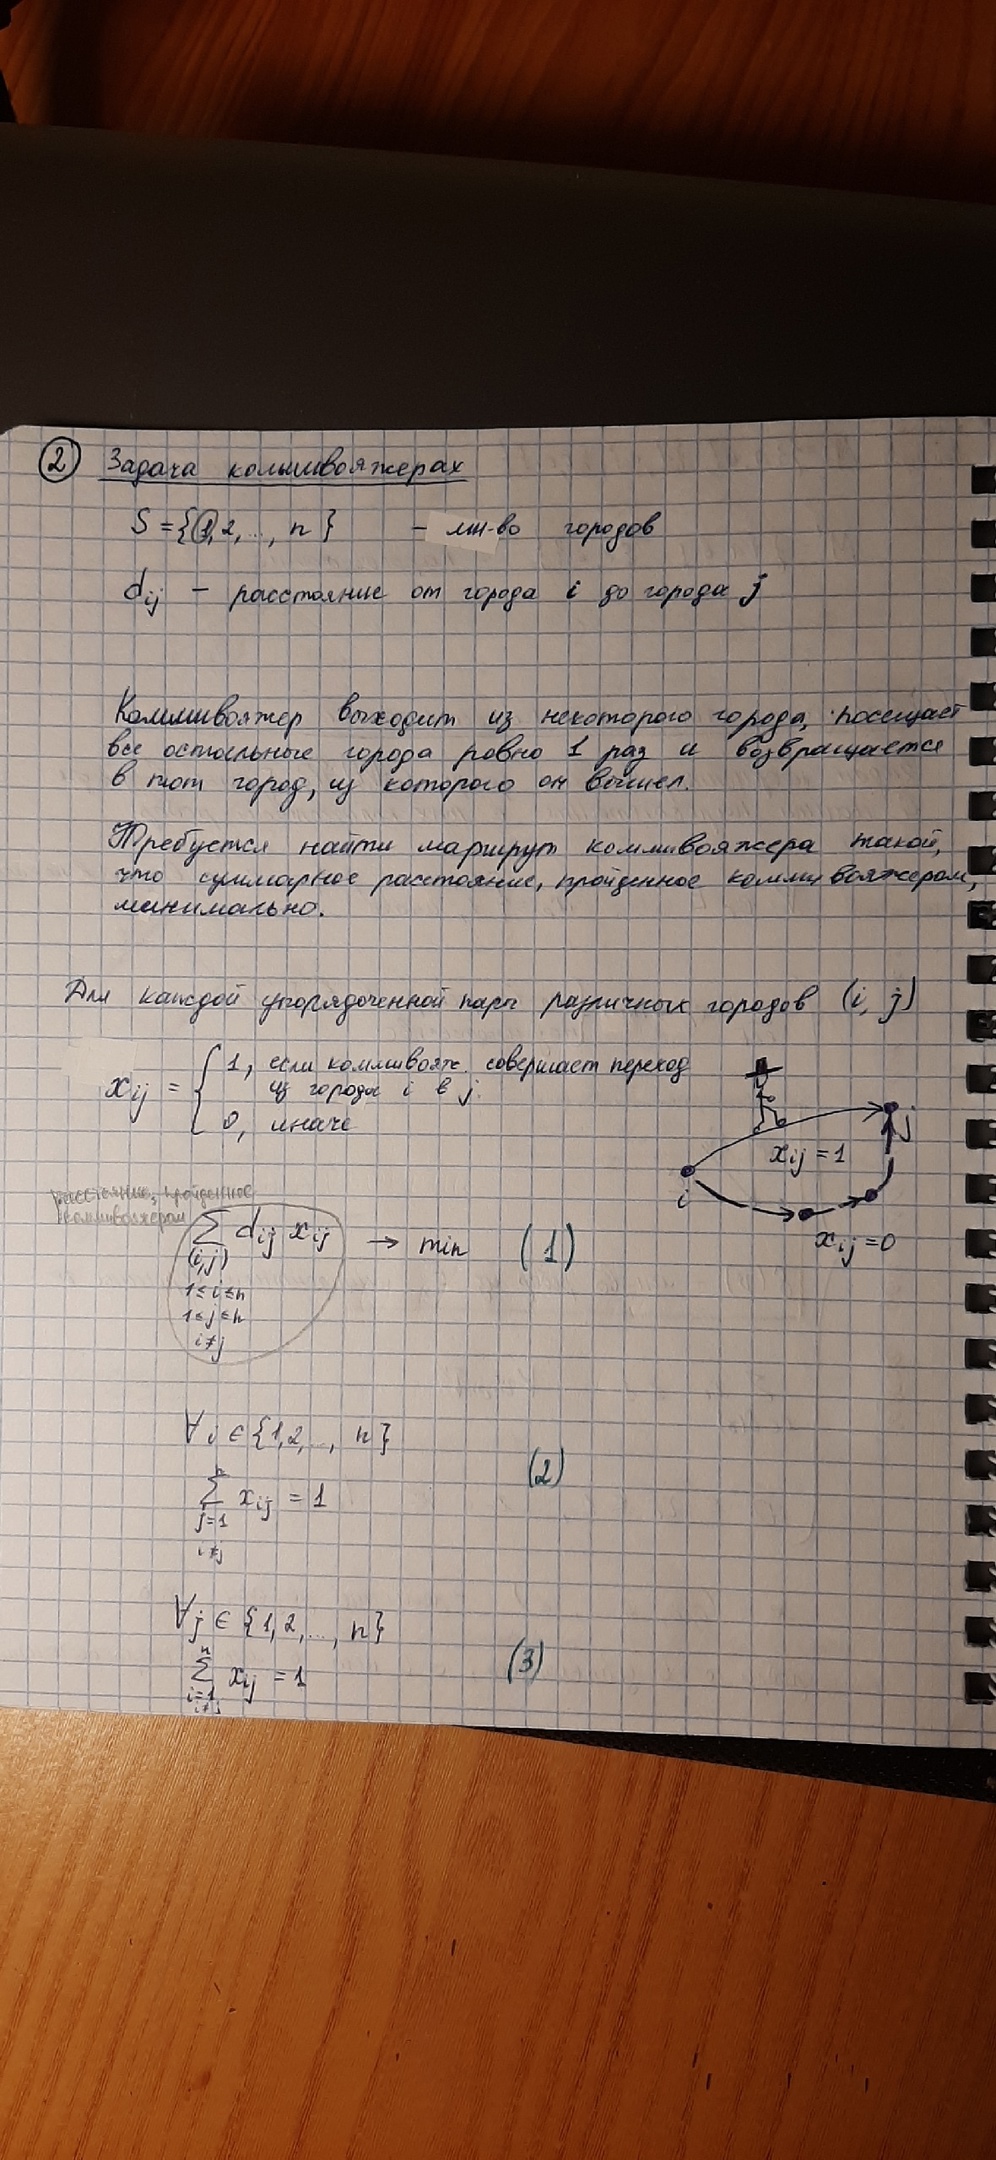 2 Задача коммивояжерах
S = {1, 2, ..., n} – мн-во городов
d_ij – расстояние от города i до города j
Коммивояжер выходит из некоторого города, посещает
все остальные города ровно 1 раз и возвращается
в тот город, из которого он вышел.
Требуется найти маршрут коммивояжера такой,
что суммарное расстояние, пройденное коммивояжером,
минимально.
Для каждой упорядоченной пары различных городов (i, j)
x_ij = { 1, если коммивояж. совершает переход
из города i в j.
0, иначе
j
x_ij = 1
i
x_ij = 0
расстояние, пройденное
коммивояжером
∑ d_ij x_ij → min (1)
(i,j)
1 ≤ i ≤ n
1 ≤ j ≤ n
i ≠ j
∀ i ∈ {1, 2, ..., n}
(2)
n
∑ x_ij = 1
j=1
i ≠ j
∀ j ∈ {1, 2, ..., n}
(3)
n
∑ x_ij = 1
i=1
i ≠ j